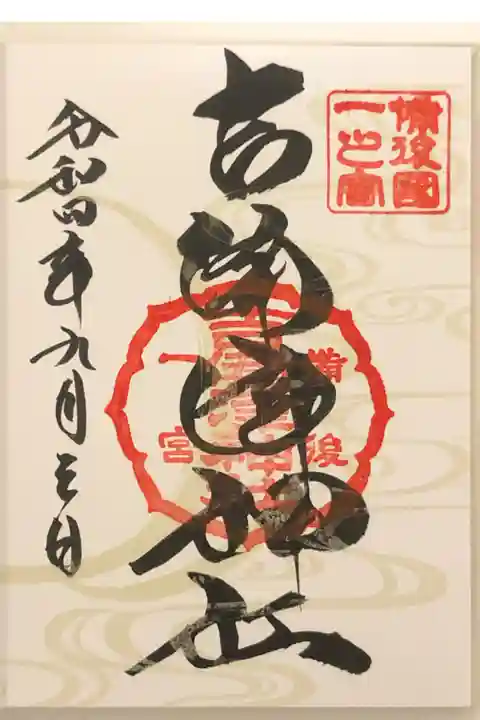 備後國
一之宮
吉備津神社
備後
一宮
吉備津神社
令和四年九月三日